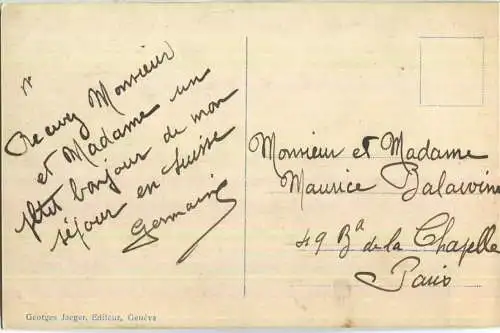 Recevez Monsieur
et Madame un
petit bonjour de mon
séjour en Suisse
Germaine
Monsieur et Madame
Maurice
49 Bd de la Chapelle
Paris
Georges Jaeger, Editeur, Genève